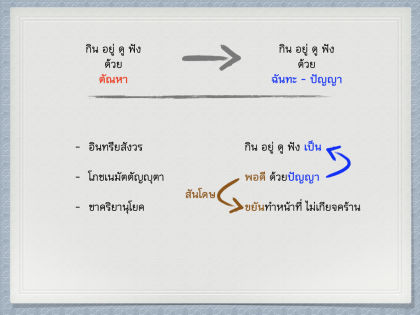 กิน อยู่ ดู ฟัง
ด้วย
ตัณหา
กิน อยู่ ดู ฟัง
ด้วย
ฉันทะ - ปัญญา
- อินทรียสังวร
กิน อยู่ ดู ฟัง เป็น
- โภชเนมัตตัญญุตา
พอดี ด้วยปัญญา
สันโดษ
- ชาคริยานุโยค
ขยันทำหน้าที่ ไม่เกียจคร้าน